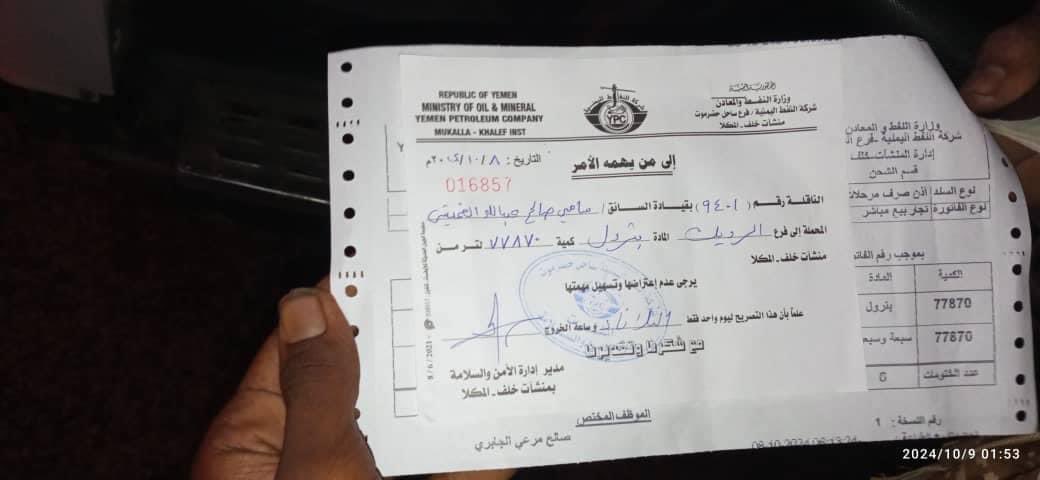 REPUBLIC OF YEMEN
MINISTRY OF OIL & MINERAL
YEMEN PETROLEUM COMPANY
MUKALLA - KHALEF INST
YPC
وزارة النفـط والمعادن
شركة النفط اليمنية / فرع ساحل حضرموت
منشآت خلف - المكلا
التاريخ: ٨ / ١٠ / ٢٠٢٤م
إلى من يهمه الأمر
016857
الناقلة رقـم (٩٤٠١) بقيادة السائق / سامي صالح عبدالله
المحملة إلى فرع الرويك المادة بترول كمية ٧٧٨٧٠ لتر من
منشآت خلف - المكلا
يرجى عدم إعتراضها وتسهيل مهمتها
علماً بأن هذا التصريح ليوم واحد فقط الثلاثاء وساعة الخروج
مع شكرنا وتقديرنا
مدير إدارة الأمن والسلامة
بمنشآت خلف - المكلا
8/6/2021
وزارة النفط و المعادن
شركة النفط اليمنية -فرع
إدارة المنشآت
قسم الشحن
نوع السند أذن صرف مرحلات
نوع الفاتورة تجار بيع مباشر
بموجب رقم
الكمية المادة
77870 بترول
77870 سبعة وسبع
عدد الختومات 6
رقم النسخة : 1
الموظف المختص
صالح مرعي الجابري
08.10.2024 06:13:24
2024/10/9 01:53